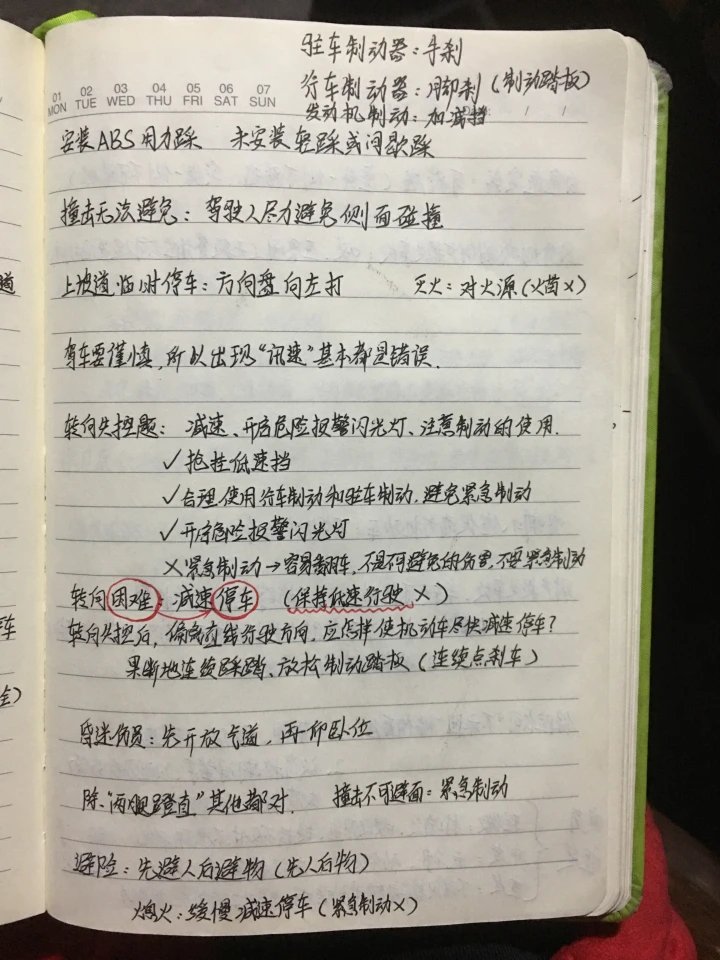 驻车制动器：手刹
行车制动器：脚刹（制动踏板）
发动机制动：加减挡
01 02 03 04 05 06 07
MON TUE WED THU FRI SAT SUN
安装ABS用力踩 未安装轻踩或间歇踩
撞击无法避免：驾驶人尽力避免侧面碰撞
上坡道临时停车：方向盘向左打 灭火：对火源（火苗×）
驾车要谨慎，所以出现“讯速”基本都是错误．
转向失控题： 减速、开启危险报警闪光灯、注意制动的使用．
✓抢挂低速挡
✓合理使用行车制动和驻车制动，避免紧急制动
✓开启危险报警闪光灯
×紧急制动→容易翻车，不是不可避免的伤害，不要紧急制动
转向困难：减速停车 （保持低速行驶×）
转向失控后，偏离直线行驶方向，应怎样使机动车尽快减速停车？
果断地连续踩踏、放松制动踏板（连续点刹车）
昏迷伤员：先开放气道，再一仰卧位
除“两腿蹬直”其他都对． 撞击不可避面：紧急制动
避险：先避人后避物（先人后物）
熄火：缓慢减速停车（紧急制动×）
道
车